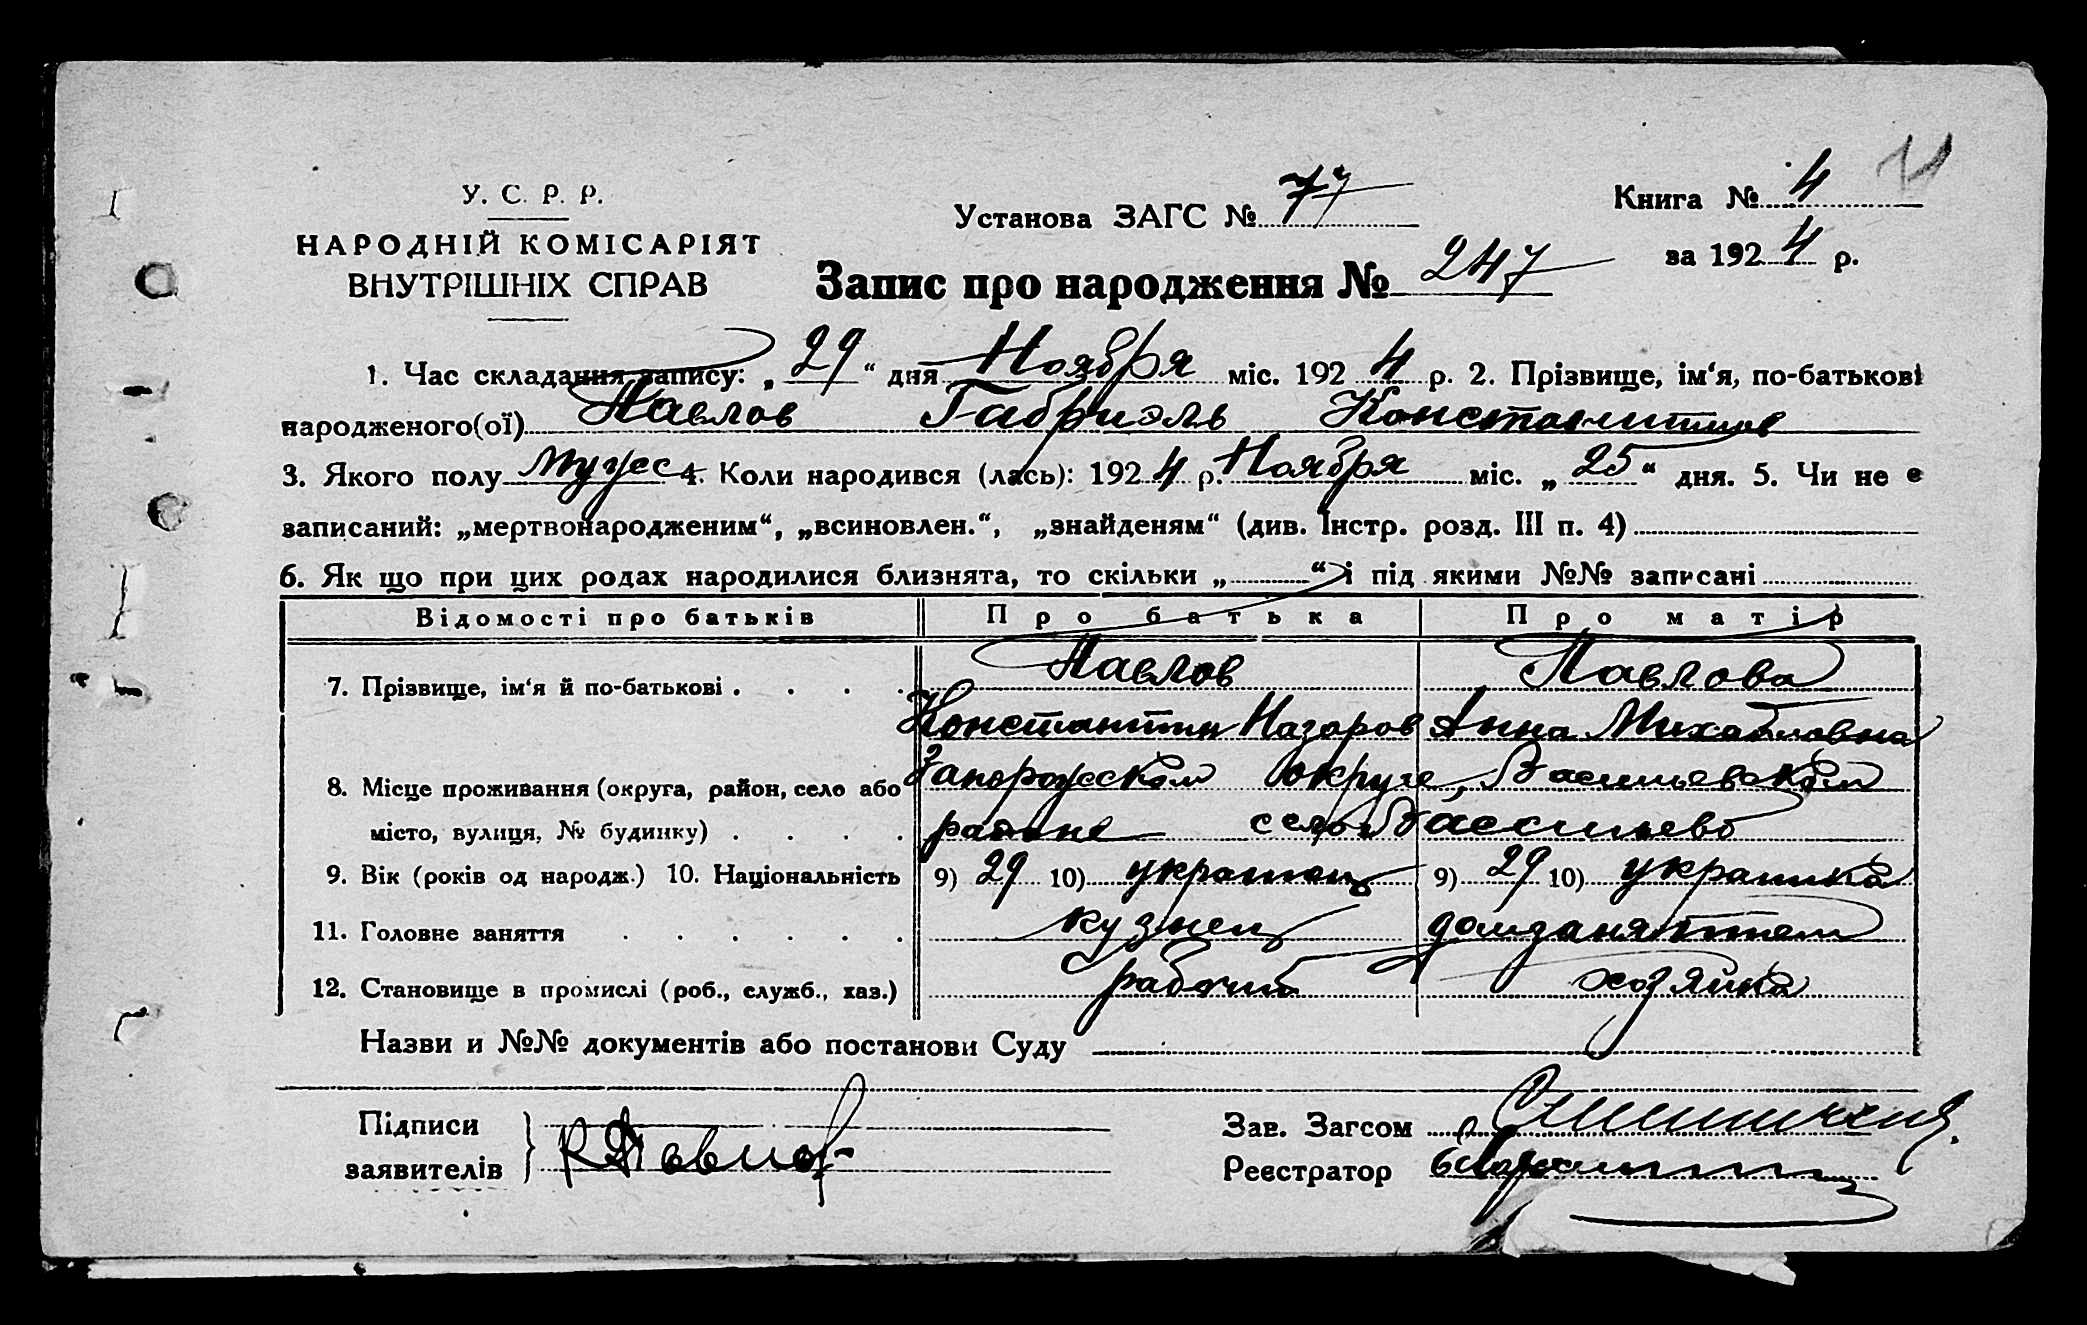 У. С. Р. Р.
НАРОДНІЙ КОМІСАРІЯТ
ВНУТРІШНІХ СПРАВ
Установа ЗАГС № 77
Книга № 4
за 1924 р.
Запис про народження № 247
1. Час складання запису: „29“ дня Ноября міс. 1924 р. 2. Прізвище, ім‘я, по-батькові
народженого(ої) Павлов Габриэль Константинов
3. Якого полу мужес 4. Коли народився (лась): 1924 р. Ноября міс. „25“ дня. 5. Чи не є
записаний: „мертвонародженим“, „всиновлен.“, „знайденям“ (див. Інстр. розд. III п. 4)
6. Як що при цих родах народилися близнята, то скільки „ “ і під якими №№ записані
Відомості про батьків Про батька Про матір
7. Прізвище, ім‘я й по-батькові . . . . Павлов Павлова
Константин Назаров Анна Михайловна
8. Місце проживання (округа, район, село або Запорожском округе, Васильевском
місто, вулиця, № будинку) . . . . районе село Вассильево
9. Вік (років од народж.) 10. Національність 9) 29 10) украинец 9) 29 10) украинка
11. Головне заняття . . . . . . кузнец домзанятием
12. Становище в промислі (роб., служб., хаз.) рабочий хозяйка
Назви и №№ документів або постанови Суду
Підписи
заявителів } К Павлов
Зав. Загсом
Реєстратор